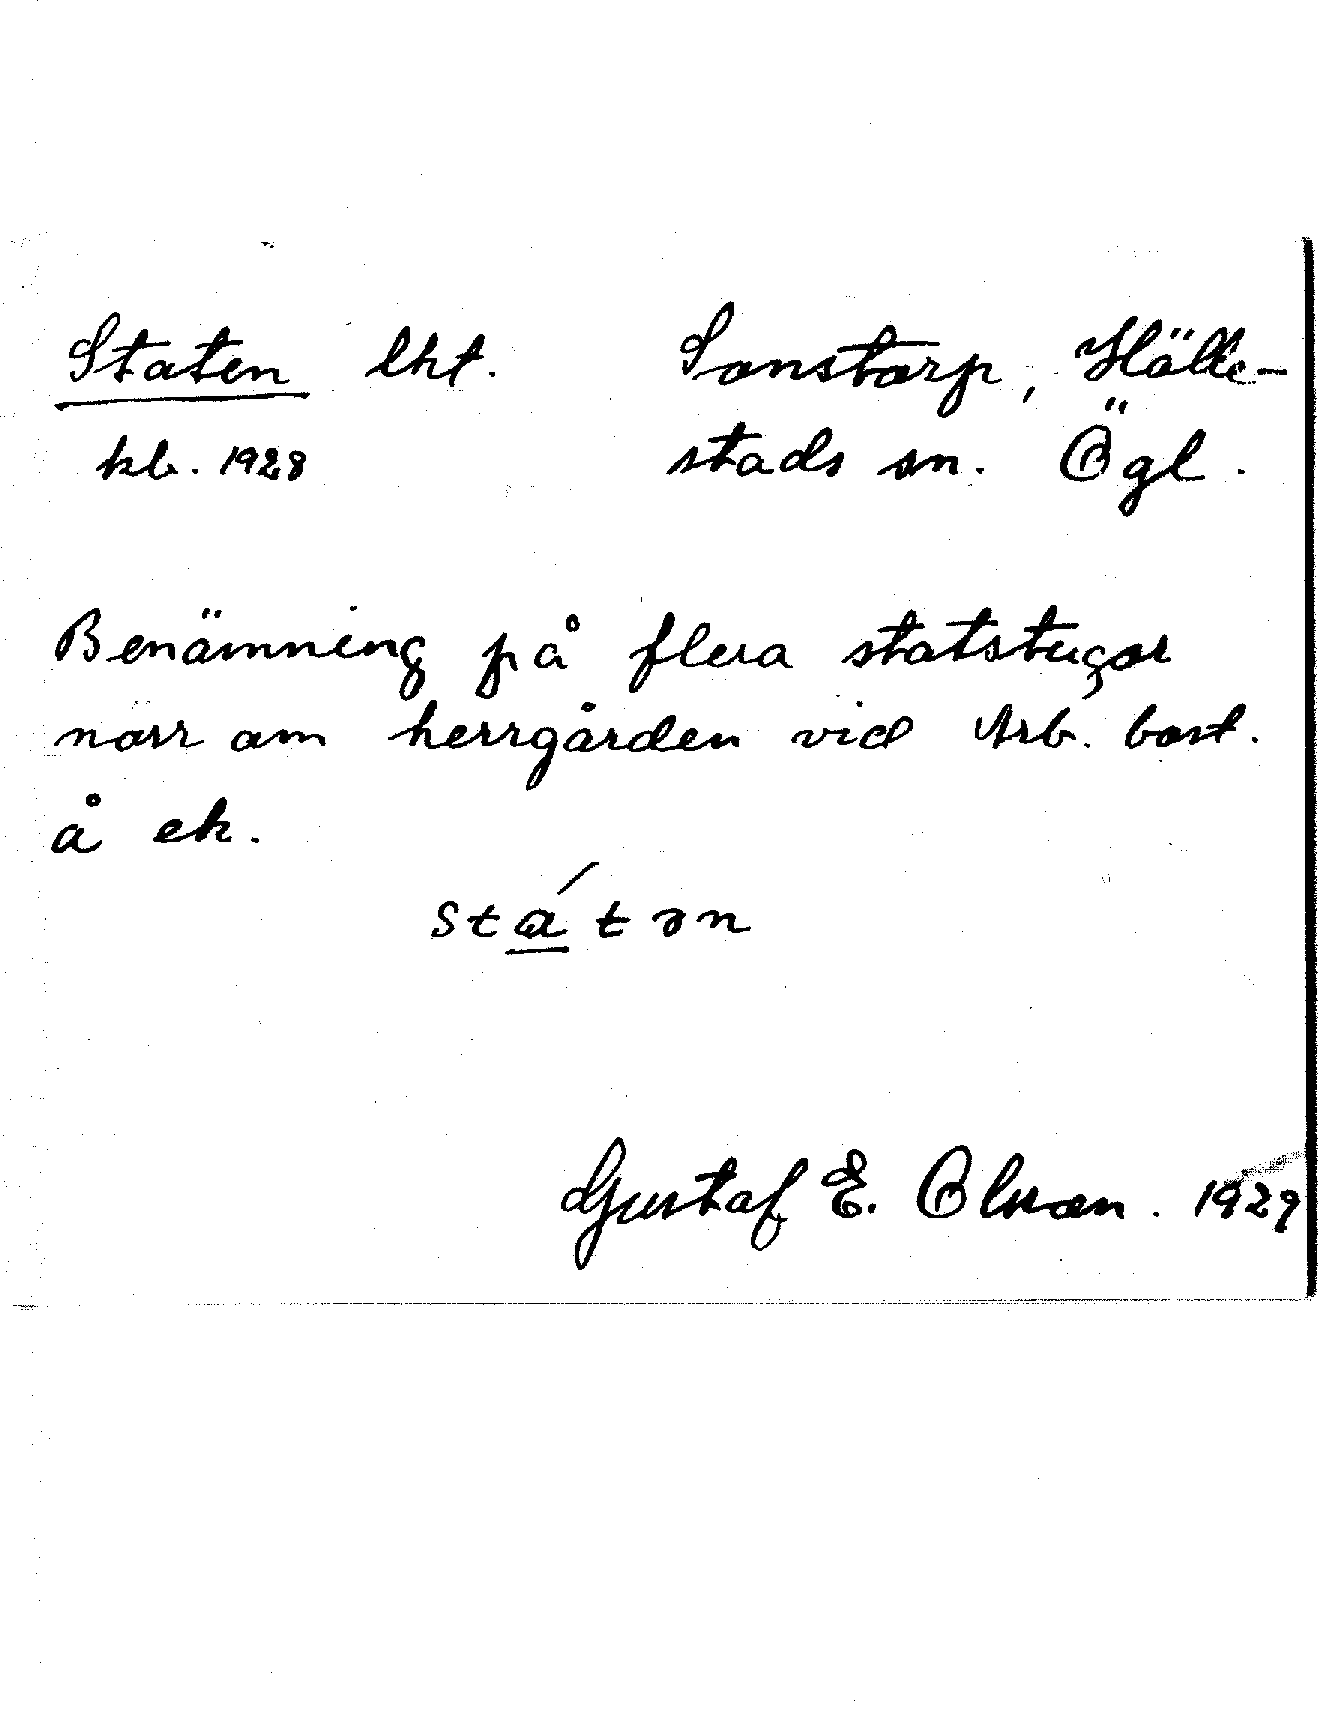 Staten lht. Sonstorp, Hälle-
kb. 1928 stads sn. Ögl.
Benämning på flera statstugor
norr om herrgården vid Arb. bost.
å ek.
státən
Gustaf E. Olsson. 1929